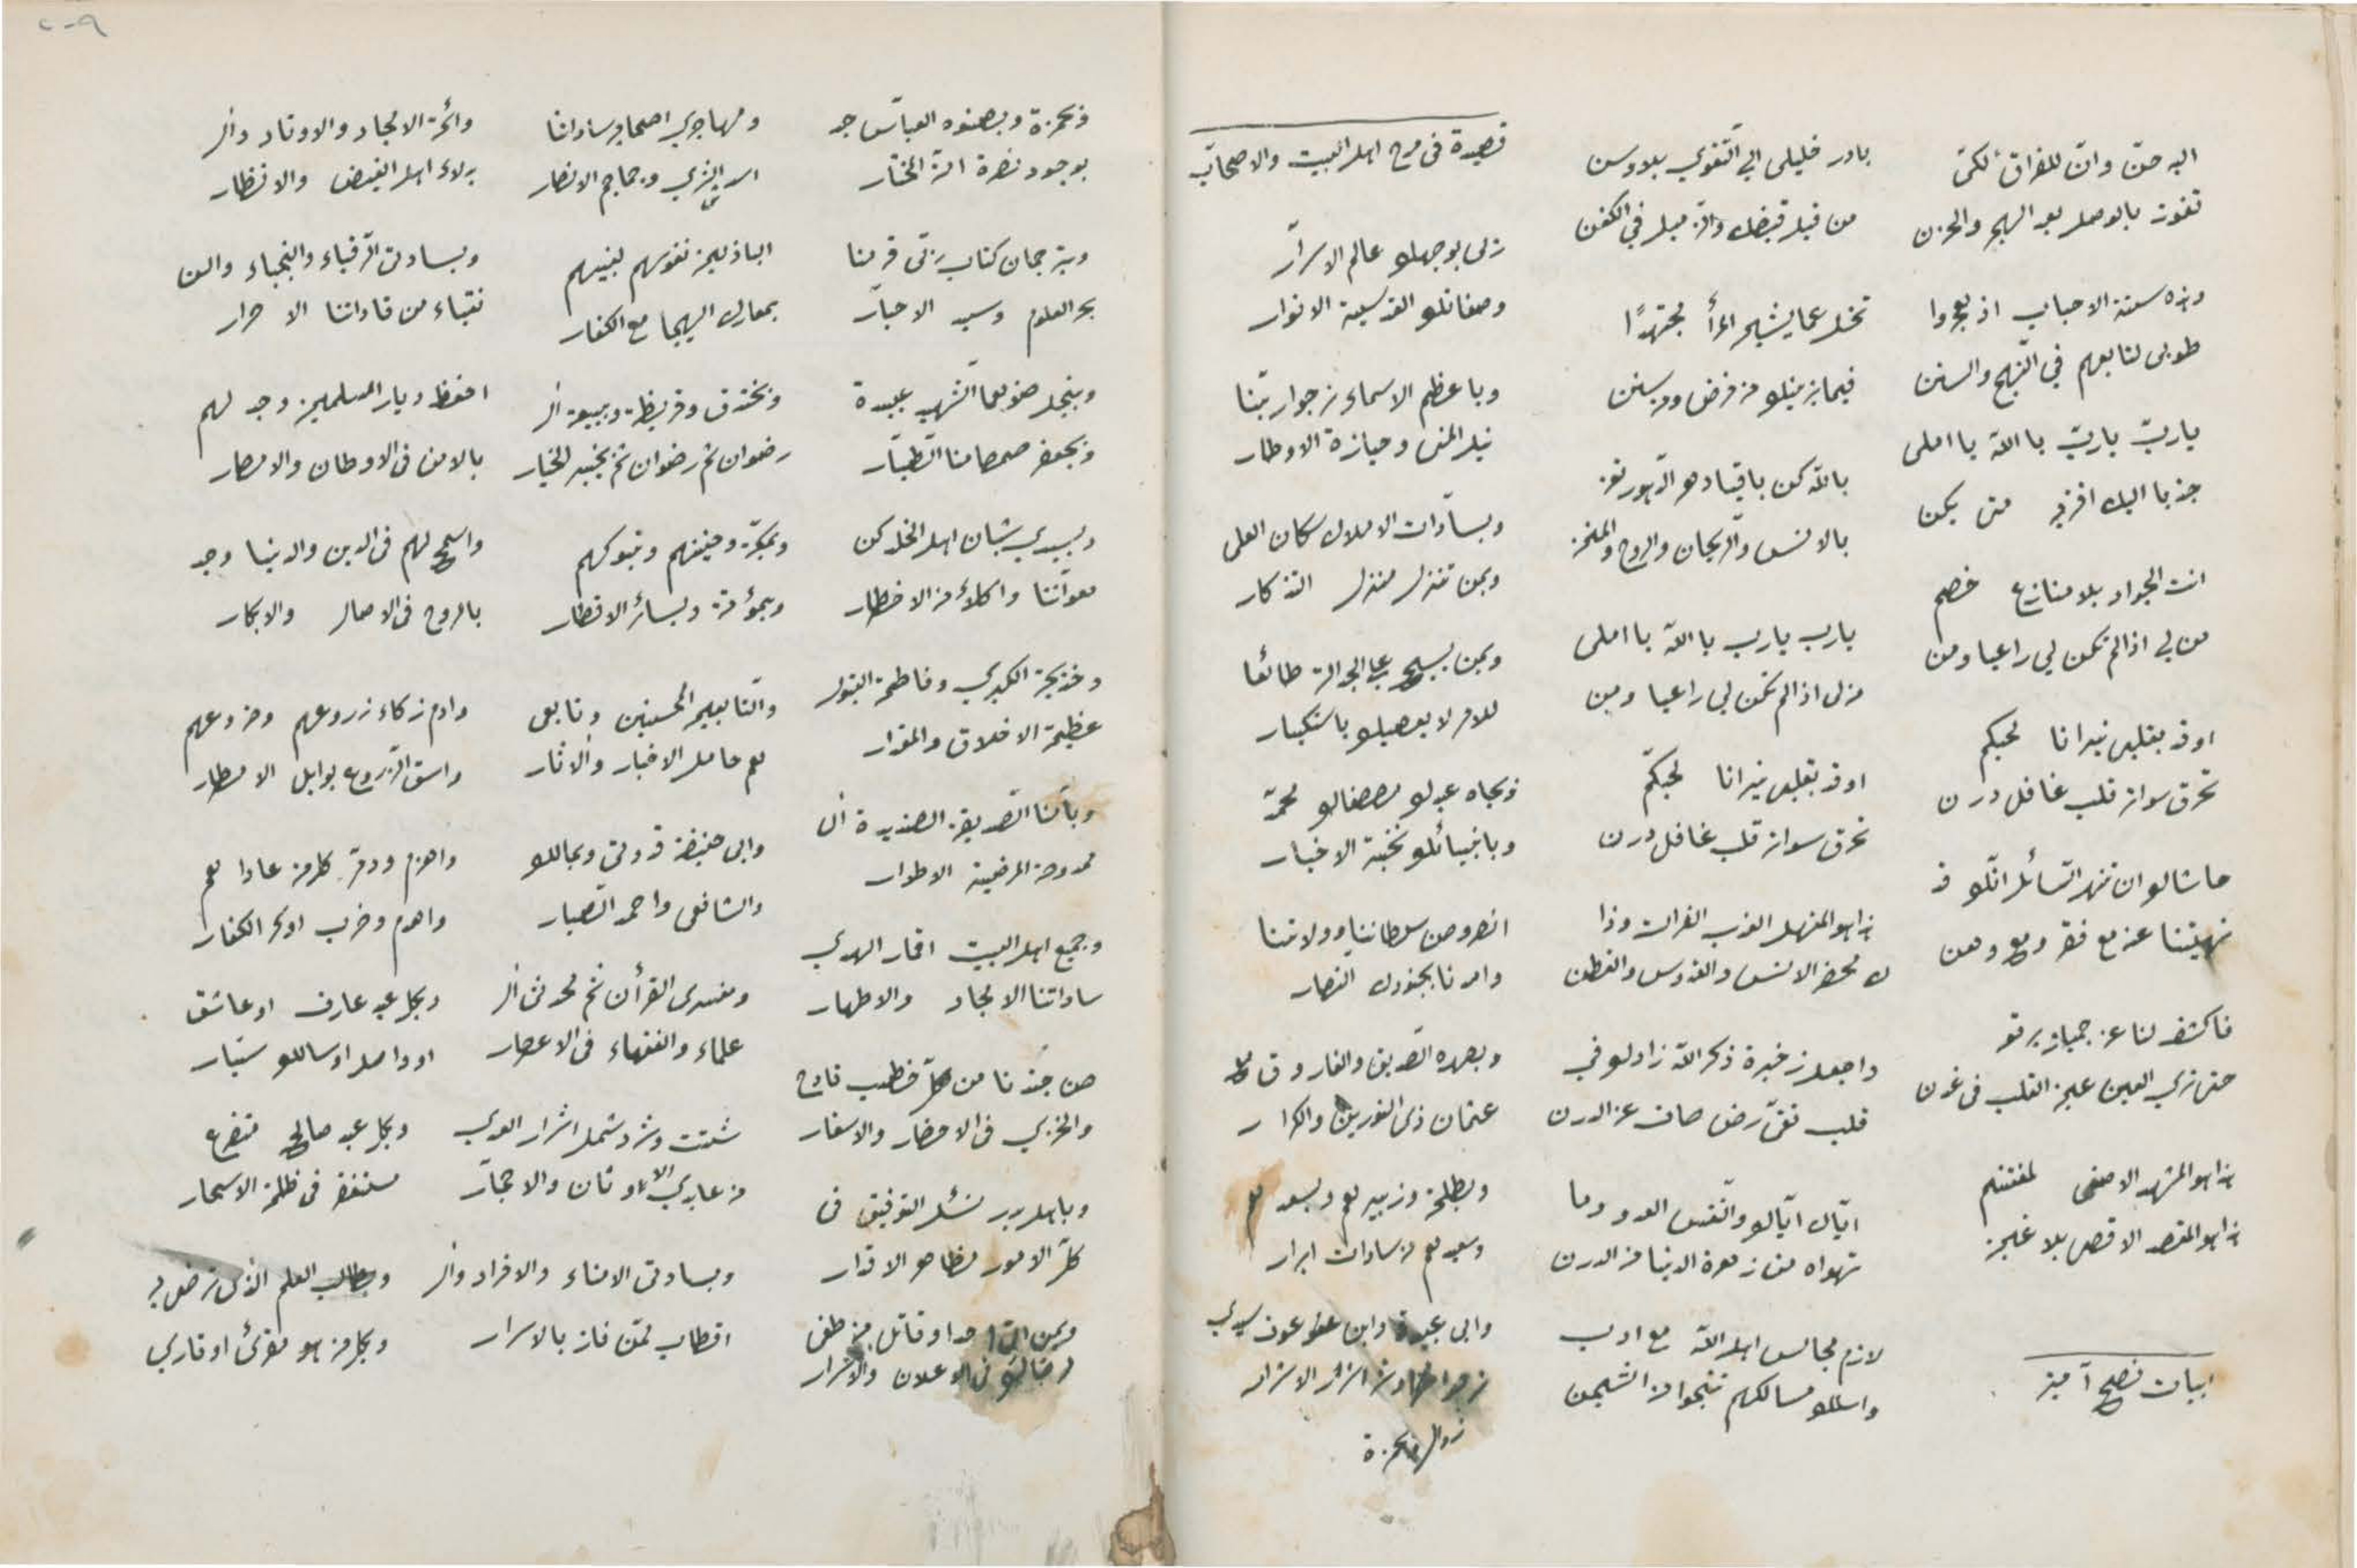 اليه حنّ وانّ للفراق لكیّ
تفوز بالوصل بعد الهجر والحزن
وهذه سنة الاحباب اذ هجروا
طوبى لتابعهم في النهج والسنن
ياربّ ياربّ يا الله يا املى
جذبا اليك افزني متى يكن
انت الجواد بلا منازع خصم
من لي اذا لم تكن لي راعيا ومن
اوقد بقلبى نيرانا لحبكم
تحرق سواك قلب غافل درن
حاشاك ان تنهر السائل انك قد
نهيتنا عنه مع فقر ومع وهن
فاكشف لنا عن جمالك برقع
حتى ترى العين عين القلب في غدن
هذا هو المشهد الاصفى لمغتنم
هذا هو المقصد الاقصى بلا غبن
ابيات نصح آميز
بادر خليلى الي التقوي بلا وسن
من قبل قبضك والترميل في الكفن
تخل عما يشين المرأ مجتهدًا
فيما يزينك من فرض ومن سنن
بالله كن باقيا دهر الدهور تفز
بالانس والريحان والروح والمنن
يارب يارب يا الله يا املى
من لى اذا لم تكن لي راعيا ومن
اوقد بقلبى نيرانا لحبكم
تحرق سواك قلب غافل درن
هذا هو المنهل العذب الفرات وذا
ك محضر الانس والقدوس والفطن
واجعل ذخيرة ذكر الله زادك في
قلب نقى رضى صاف عن الدرن
اياك اياك والنفس العدو وما
تهواه من زهرة الدنيا من الدرن
لازم مجالس اهل الله مع ادب
واسلك مسالكهم تنجوا من الشجن
قصيدة فى مدح اهل البيت والاصحاب
ربى بوجهك عالم الاسرار
وصفاتك القدسية الانوار
وبا عظم الاسماء من جوار بنا
نيل المنى وحيازة الاوطار
وبسادات الاملاك سكان العلى
وبمن تنزل منزل التذكار
وبمن يسبح على الجلالة طائعا
للامر لا يعصيك باستكبار
وبجاه عبدك مصطفاك محمد
وبانبيائك نخبة الاخيار
انصر وصن سلطاننا وولاتنا
وامدنا بجنودك النصار
وبصهره الصديق والفاروق مع
عثمان ذى النورين والكرار
وبطلحة وزبيرهم وبسعدهم
وسعيدهم من سادات ابرار
وابى عبيدة وابن عوف سيدي
وبحمزة وبصنوه العباس جد
بوجود نصرة الة المختار
وبترجمان كتاب ربى قرمنا
بحر العلوم وسيد الاحبار
وبنجل صنوهما الشهيد عبيدة
وبجعفر صمصامنا الطيار
وبسيدي شبان اهل الخلد كن
معواننا واكلأ من الاخطار
وخديجة الكبري وفاطمة البتول
عظيمة الاخلاق والمقدار
وبأمنا الصديقة الصنديدة ال
ممدوحة المرضية الاطوار
وجميع اهل البيت اقمار الهدي
ساداتنا الامجاد والاطهار
صن جندنا من كل خطب فادح
والخزي فى الاحضار والاسفار
وباهل بدر نسئل التوفيق فى
كل الامور مظاهر الاقدار
ومهاجري اصحابه ساداتنا
اسد الشرى وجماجم الانصار
الباذلين نفوسهم لنبيهم
بمعارك الهيجا مع الكفار
وبخندق وقريظة وببيعة ال
رضوان ثم رضوان ثم بخيبر الخيار
وبمكة وحنينهم وتبوكهم
وبمؤتة وبسائر الاقطار
والتابعين المحسنين وتابعى
هم حامل الاخبار والاثار
وابى حنيفة قدوتى وبمالك
والشافعى واحمد الصبار
ومفسرى القرأن ثم محدثى ال
علماء والفقهاء فى الاعصار
شتت وشرد شمل اشرار العدي
من عابدي الاوثان والاحجار
وبسادتى الامناء والافراد وال
اقطاب ممن فاز بالاسرار
وائمة الامجاد والاوتاد وال
بدلاء اهل الفيض والانظار
وبسادتى الرقباء والنجباء وال
نقباء من قاداتنا الاحرار
احفظ ديار المسلمين وجد لهم
بالامن فى الاوطان والامصار
واسمح لهم فى الدين والدنيا وجد
بالروح فى الاصال والابكار
وادم زكاء زروعهم وضروعهم
واسق الزروع بوابل الامطار
واهزم ودمر كل من عاداهم
واهدم وخرب اوكر الكفار
وبكل عبد عارف او عاشق
او واصل او سالك سيار
وبكل عبد صالح متضرع
مستغفر فى ظلمة الاسحار
وبطالب العلم الذى ترضى به
وبكل من هو مقرئ او قاري